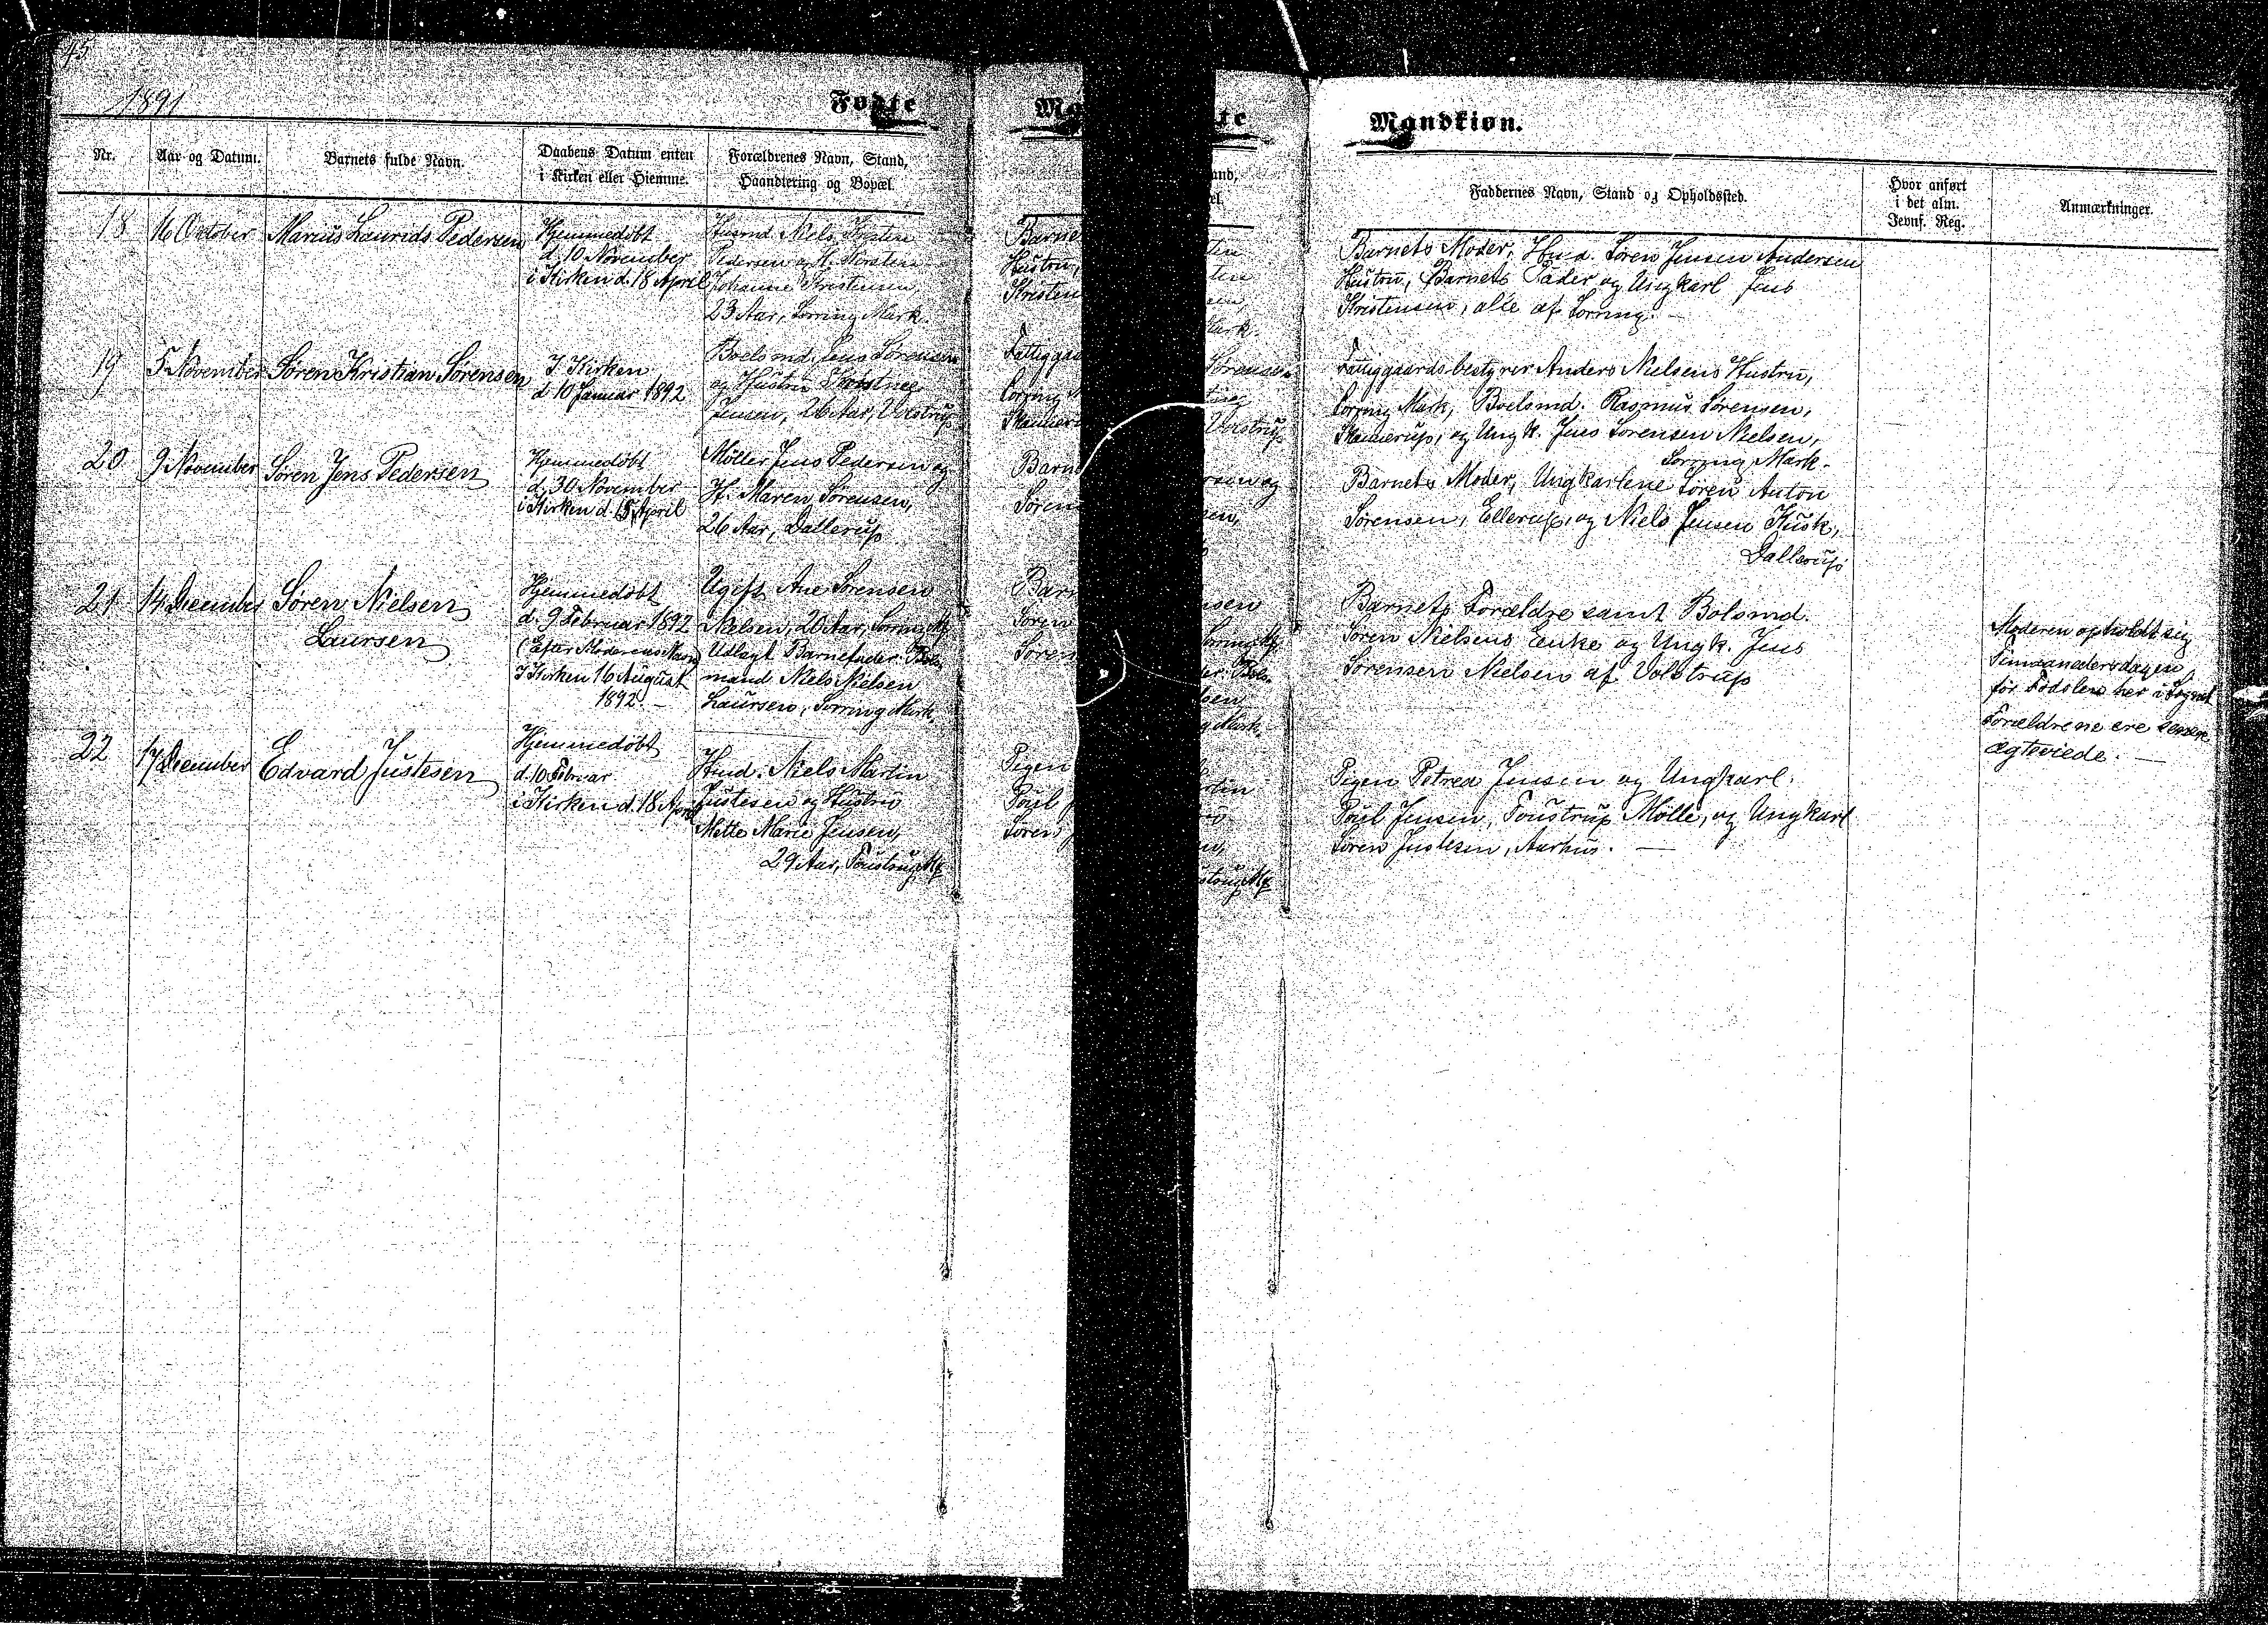 45
1891
Fødte
Mandkiøn.
Nr.
Aar og Datum.
Barnets fulde Navn.
Daabens Datum enten
i Kirken eller Hiemme.
Forældrenes Navn, Stand,
Haandtering og Bopæl.
Faddernes Navn, Stand og Opholdssted.
Hvor anført
i det alm.
Jevnf. Reg.
Anmærkninger.
18
16 October
Marius Laurids Pedersen
Hjemmedøbt
d. 10 November
i Kirken d. 18 April
Husmd. Niels Kristen
Pedersen og H. Kirsten
Johanne Kristensen,
23 Aar, Sorring Mark.
Barnets Moder, Hmd. Søren Jensen Andersen
Hustru, Barnets Fader og Ungkarl Jens
Kristensen, alle af Sorring. —
19
5 November
Søren Kristian Sørensen
I Kirken
d 10 Januar 1892
Boelsmd. Jens Sørensen
og Hustru
Jensen, 26 Aar, Volstrup
Fattiggaardsbestyrer Anders Nielsens Hustru,
Sorring Mark, Boelsmd. Rasmus Sørensen,
Skannerup, og Ungk. Jens Sørensen Nielsen,
Sorring Mark.
20
9 November
Søren Jens Pedersen
Hjemmedøbt
d. 30 November
i Kirken d. 15 April
Møller Jens Pedersen og
H. Maren Sørensen,
26 Aar, Dallerup
Barnets Moder, Ungkarlene Søren Anton
Sørensen, Ellerup, og Niels Jensen Kusk,
Dallerup
21
14 December
Søren Nielsen
Laursen
Hjemmedøbt
d. 9 Februar 1892
(Efter Moderens Navn)
I Kirken 16 August
1892. —
Ugift Ane Sørensen
Nielsen, 20 Aar, Sorring Mk
Udlagt Barnefader: Bols-
mand Niels Nielsen
Laursen, Sorring Mark.
Barnets Forældre samt Bolsmd.
Søren Nielsens Enke og Ungk. Jens
Sørensen Nielsen af Volstrup
Moderen opholdt sig
Timaanedersdagen
før Fødslen her i Sognet
Forældrene ere senere
ægteviede. —
22
17 December
Edvard Justesen
Hjemmedøbt
d. 10 Februar
i Kirken d. 18 April
Hmd. Niels Martin
Justesen og Hustru
Mette Marie Jensen,
29 Aar, Toustrup Mk
Pigen Petrea Jensen og Ungkarl.
Poul Jensen, Toustrup Mølle, og Ungkarl
Søren Justesen, Aarhus. —